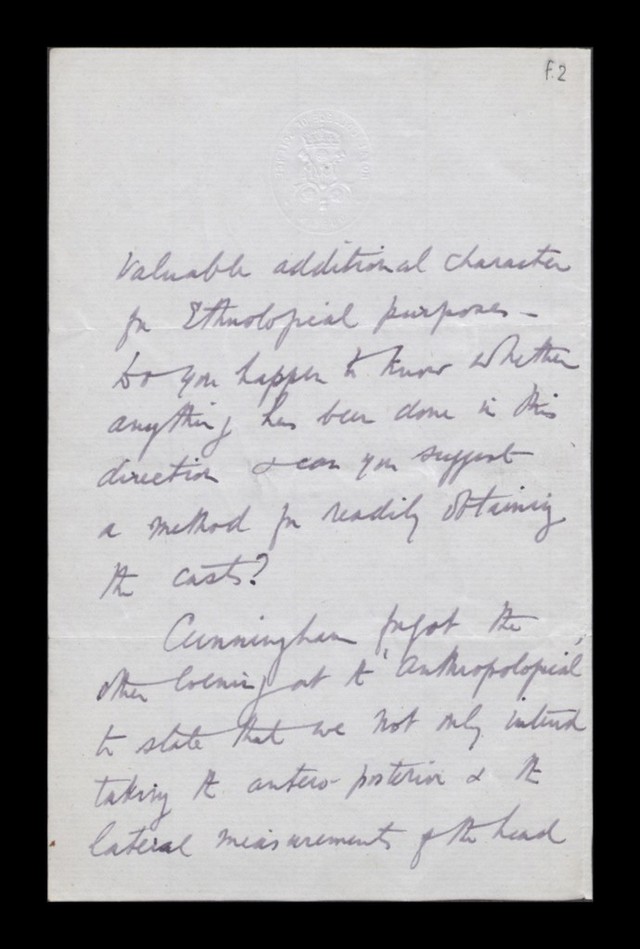 f.2
valuable additional character
for Ethnological purposes -
Do you happen to know whether
anything has been done in this
direction & can you suggest
a method for readily obtaining
the casts?
Cunningham forgot the
other evening at the 'Anthropological'
to state that we not only intend
taking the antero-posterior & the
lateral measurements of the head